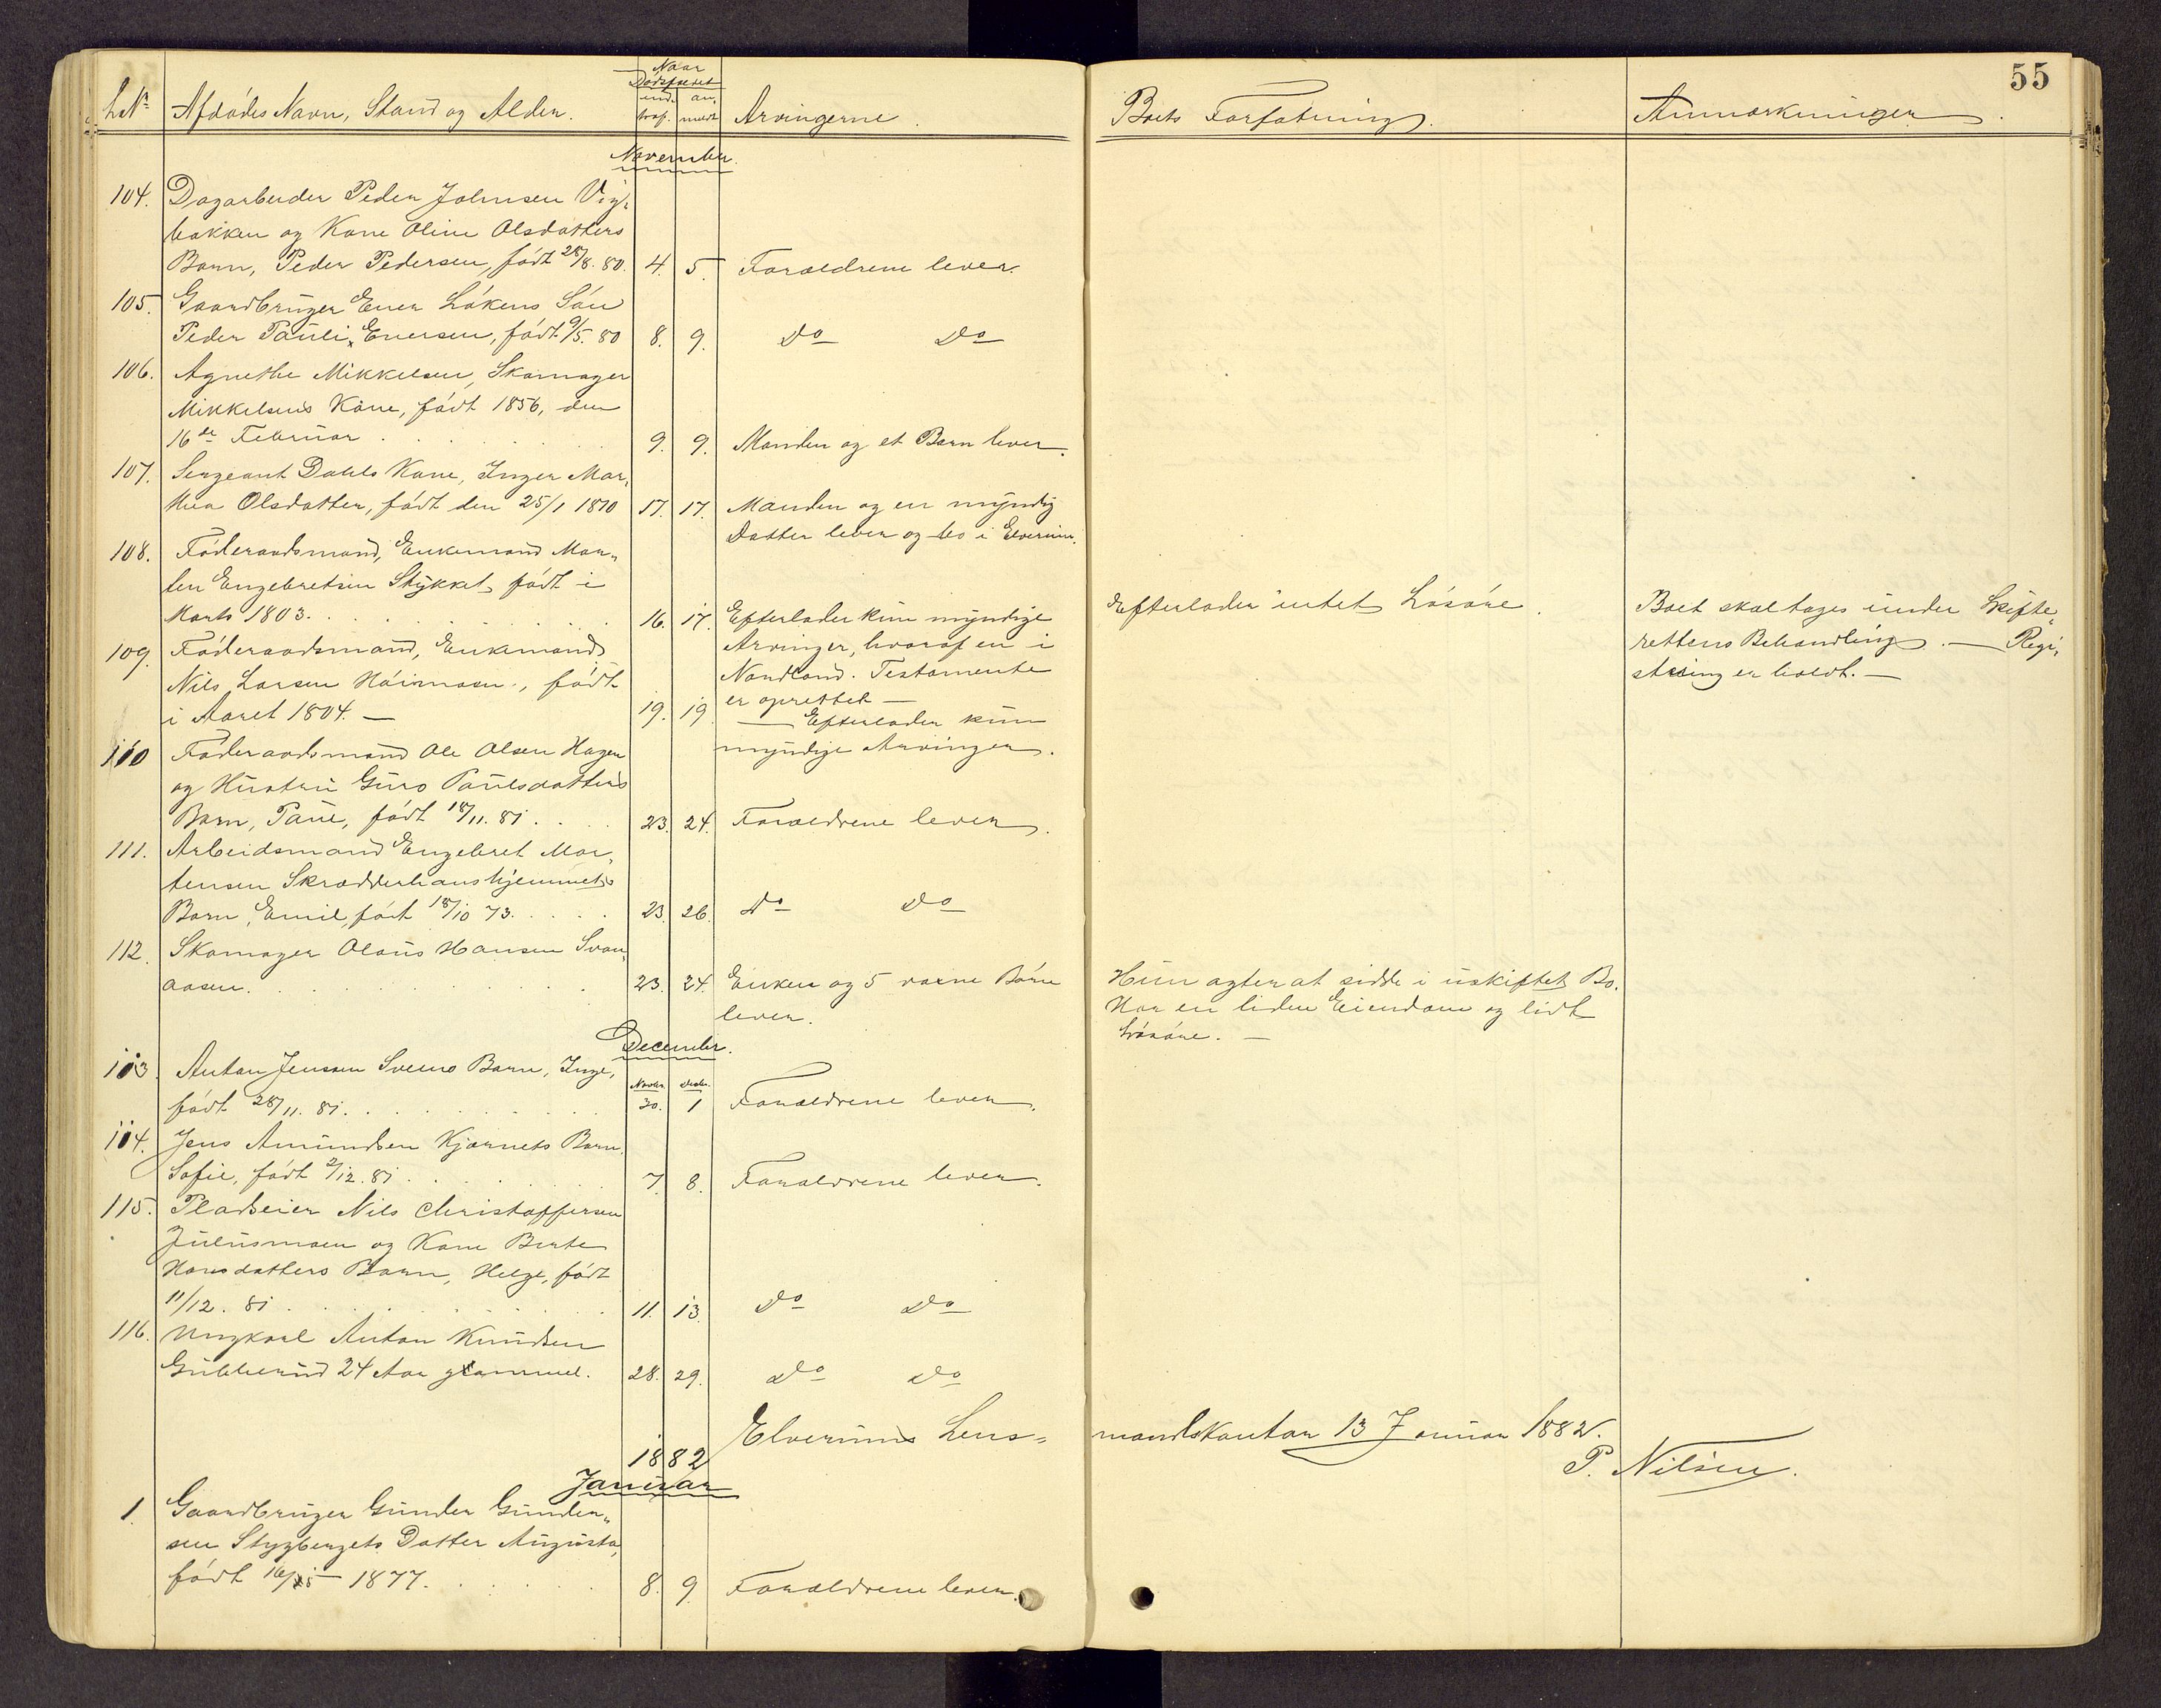 55
LNr. Afdødes Navn, Stand og Alder. Naar Dødsfaldet indtraf. anmeldt Arvingerne. Boets Forfatning. Anmærkninger.
November.
104. Dagarbeider Peder Johnsen Vig-
bakken og Kone Oline Olsdatters
Barn, Peder Pedersen, født 28/8. 80. 4. 5. Forældrene lever.
105. Gaardbruger Ener Løkens Søn
Peder Pauli Enersen, født 9/5. 80 8. 9. Do Do
106. Agnethe Mikkelsen, Skomager
Mikkelsens Kone, født 1856, den
16de Februar 9. 9. Manden og et Barn lever.
107. Sergeant Dahls Kone, Inger Mar-
thea Olsdatter, født den 25/1 1810 17. 17. Manden og en myndig
Datter lever og bo i Elverum.
108. Føderaadsmand, Enkemand Mor-
ten Engebretsen Stykket født i
Marts 1803. 16. 17. Efterlader kun myndige
Arvinger, hvoraf en i
Nordland. Testamente
er oprettet —
Efterlader intet Løsøre.
Boet skal tages under Skifte-
rettens Behandling. — Regi-
strering er holdt. —
109. Føderaadsmand, Enkemand
Nils Larsen Høimoen, født
i Aaret 1804. — 19. 19. — Efterlader kun
myndige Arvinger.
110 Føderaadsmand Ole Olsen Hagen
og Hustru Guro Paulsdatters
Barn, Paul, født 18/11. 81. 23. 24. Forældrene lever.
111. Arbeidsmand Engebret Mor-
tensen Skrædderhanshjemmets
Barn, Emil, født 18/10 73. 23. 26. Do Do
112. Skomager Olaus Hansen Svan-
aasen. 23. 24. Enken og 5 voxne Børn
lever.
Hun agter at sidde i uskiftet Bo.
Har en liden Eiendom og lidt
Løsøre. —
December.
113. Anton Jensen Sveens Barn, Inge, Novbr. Decbr.
født 28/11. 81. 30. 1 Forældrene lever.
114. Jens Amundsen Kjærnets Barn
Sofie, født 2/12. 81. 7. 8. Forældrene lever.
115. Pladseier Nils Christoffersen
Juliusmoen og Kone Berte
Hansdatters Barn, Helge, født
11/12. 81. 11. 13. Do Do
116. Ungkarl Anton Knudsen
Gubberud 24 Aar gammel. 28. 29. Do Do
Elverums Lens-
mandskontor 13 Januar 1882.
P. Nilsen.
1882
Januar
1. Gaardbruger Gunder Gunder-
sen Stygbergets Datter Augusta,
født 16/5 — 1877. 8. 9. Forældrene lever.